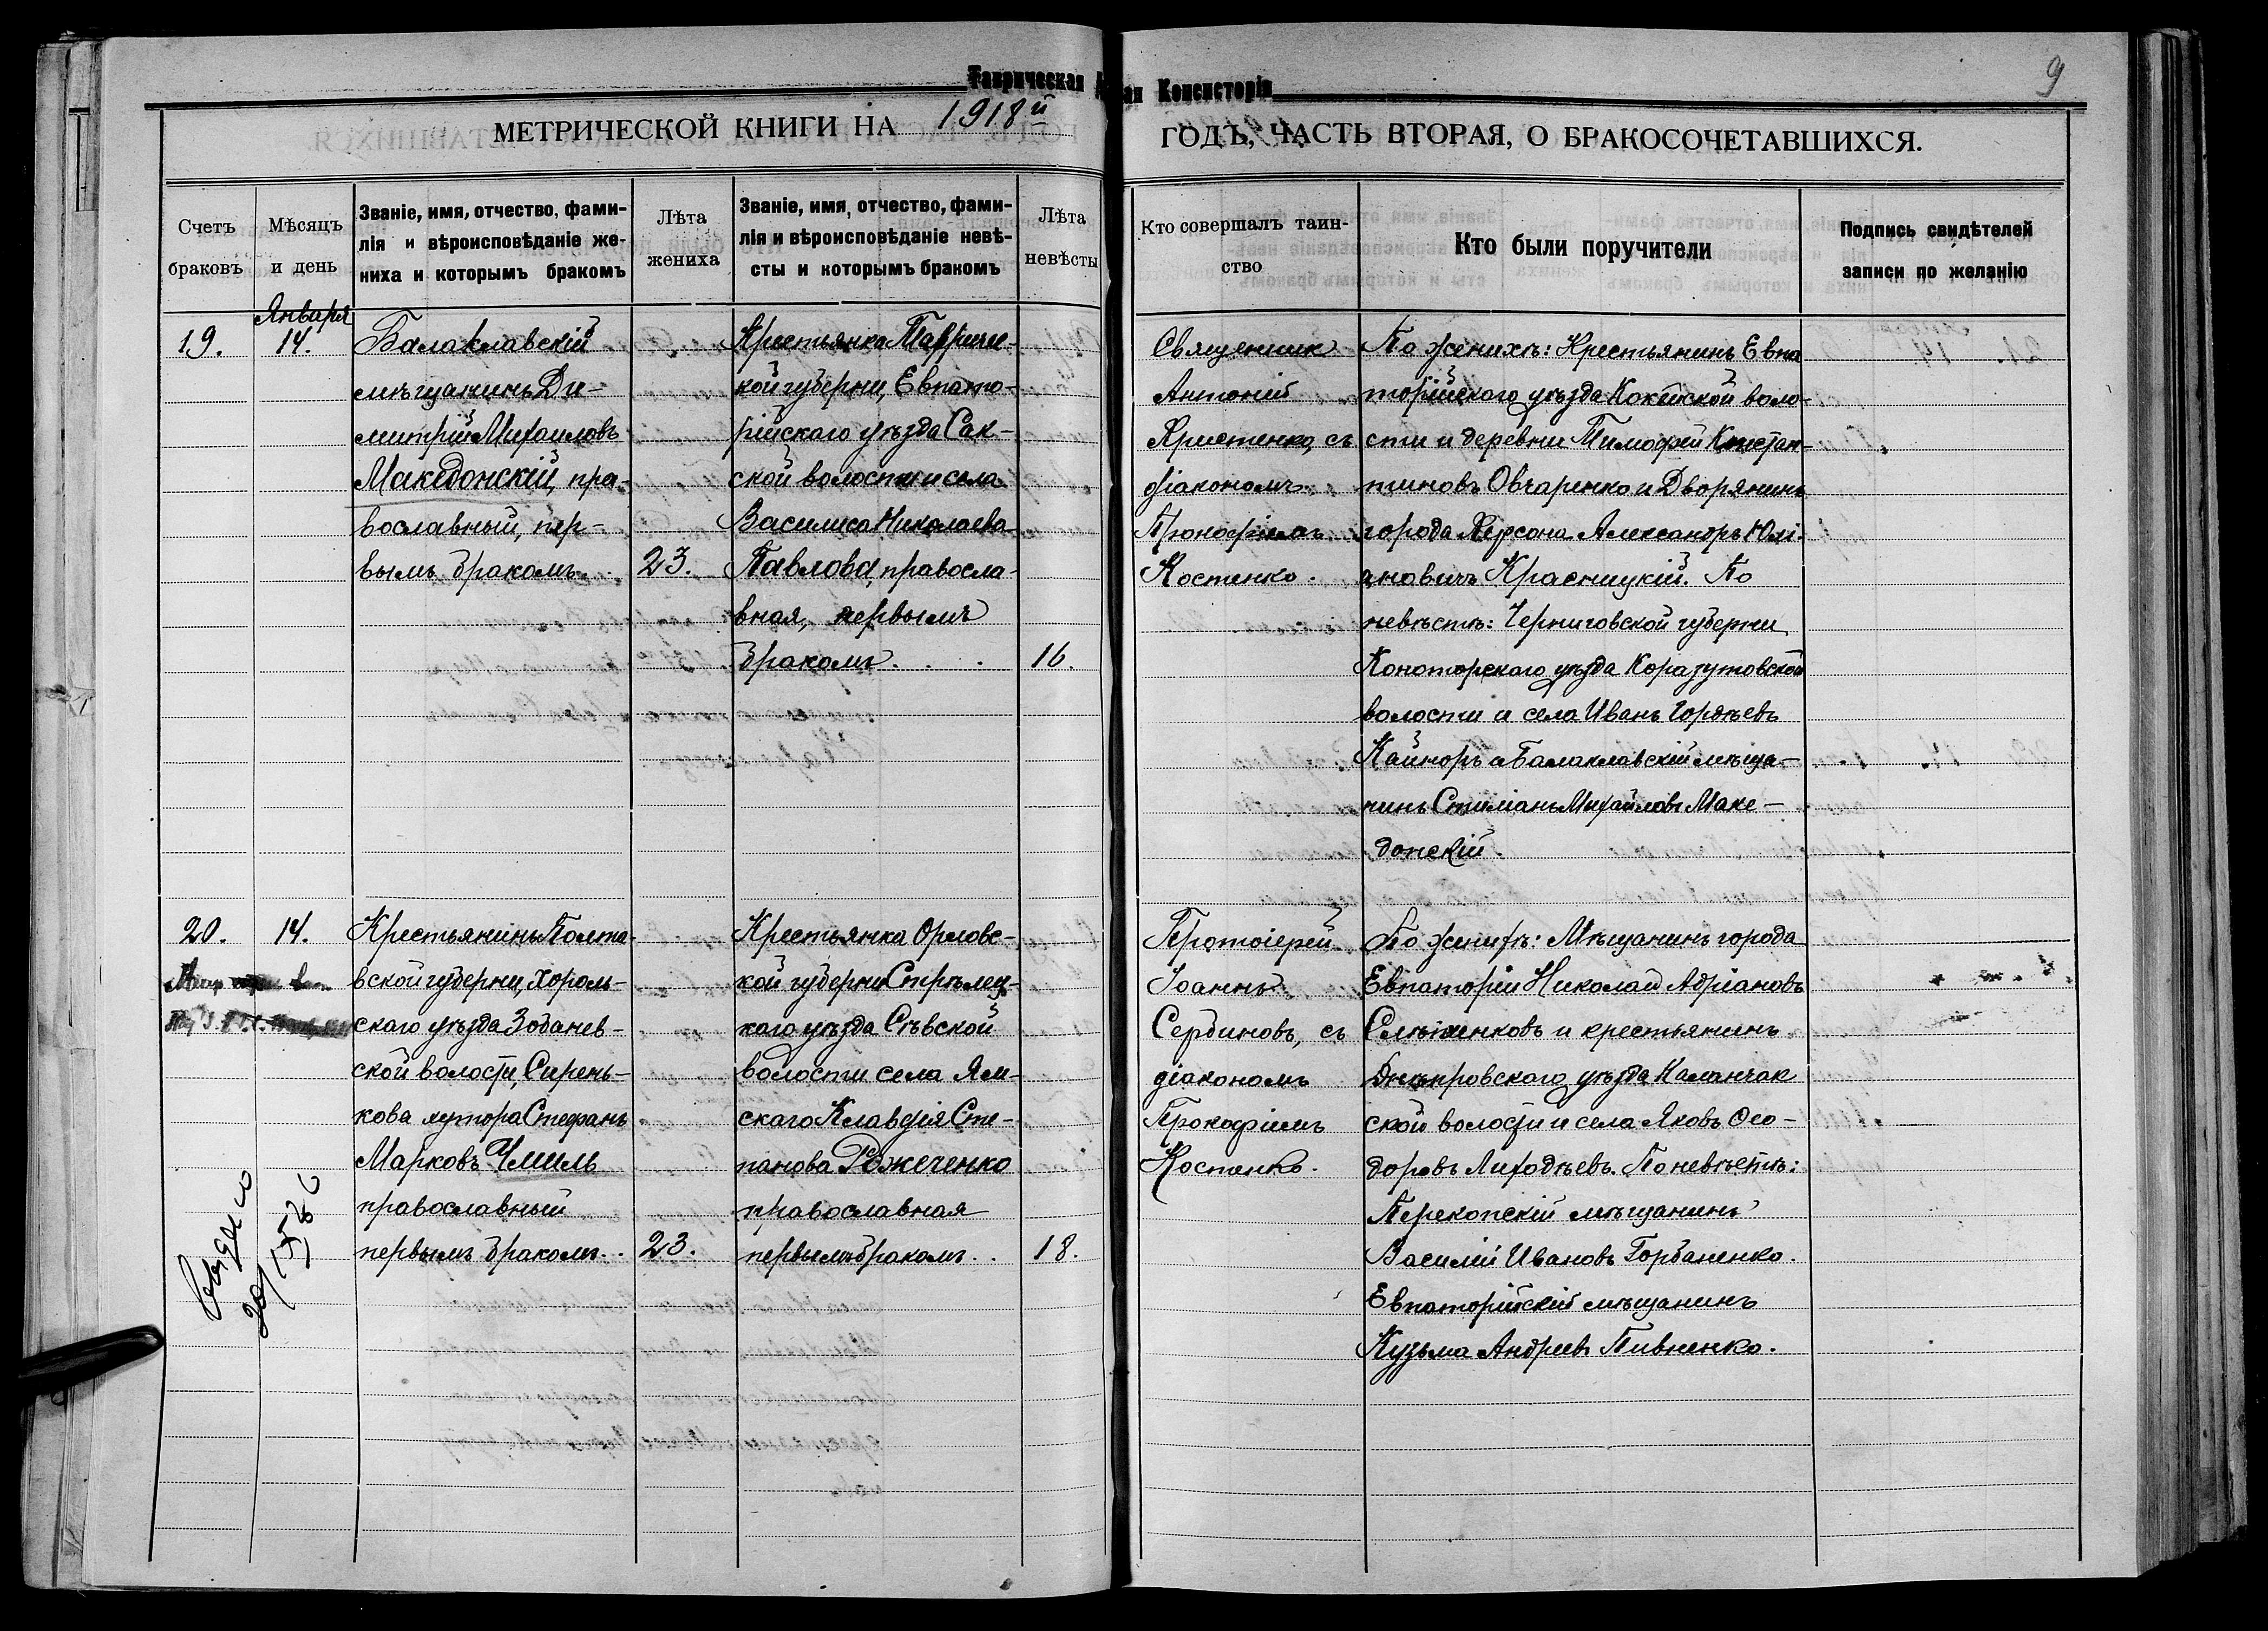 Таврическая
ая Консисторія
9
МЕТРИЧЕСКОЙ КНИГИ НА 1918й
ГОДЪ, ЧАСТЬ ВТОРАЯ, О БРАКОСОЧЕТАВШИХСЯ.
Счетъ
браковъ
Мѣсяцъ
и день
Званіе, имя, отчество, фами-
лія и вѣроисповѣданіе же-
ниха и которымъ бракомъ
Лѣта
жениха
Званіе, имя, отчество, фами-
лія и вѣроисповѣданіе невѣ-
сты и которымъ бракомъ
Лѣта
невѣсты
Кто совершалъ таин-
ство
Кто были поручители
Подпись свидѣтелей
записи по желанію
Января
19.
14.
Балаклавскій
мѣщанинъ Ди-
митрій Михаиловъ
Македонскій, пра-
вославный, пер-
вымъ бракомъ.
23.
Крестьянка Тавриче-
кой губерни, Евпато-
рійскаго уѣзда Сак-
ской волости и села
Василиса Николаева
Павлова, правосла-
вная, первымъ
бракомъ.
16.
Священник
Антоній
Христенко, съ
діакономъ
Прокофіемъ
Костенко.
По женихѣ: Крестьянинъ Евпа
торійскаго уѣзда Кокейской воло-
сти и деревни Тимофей Констан-
тиновъ Овчаренко и Дворянинъ
города Херсона Александръ Юлі-
ановичъ Красницкій. По
невѣстѣ: Черниговской губерни
Конотопскаго уѣзда
волости и села Иванъ Гордѣевъ
и Балаклавскій мѣща-
нинъ Стиліанъ Михайловъ Маке-
донскій.
20.
14.
Крестьянинъ Полта-
вской губерни, Хороль-
скаго уѣзда
ской волости, Сирень-
кова хутора Стефанъ
Марковъ Чмиль
православный
первымъ бракомъ.
23.
Крестьянка Орловс-
кой губерни Стрѣлец-
каго уѣзда Сѣвской
волости села Ям-
скаго Клавдія Сте-
панова Рожеченко
православная
первымъ бракомъ.
18.
Протоіерей
Іоаннъ
Сербиновъ, съ
діакономъ
Прокофіемъ
Костенко.
По женихѣ: Мѣщанинъ города
Евпаторіи Николай Адріановъ
и крестьянинъ
Днѣпровскаго уѣзда Каланчак
ской волости и села Яковъ Ѳео-
доровъ Лиходѣевъ. По невѣстѣ:
Перекопскій мѣщанинъ
Василій Ивановъ Горбаненко.
Евпаторійскій мѣщанинъ
Кузьма Андреевъ Пивненко.